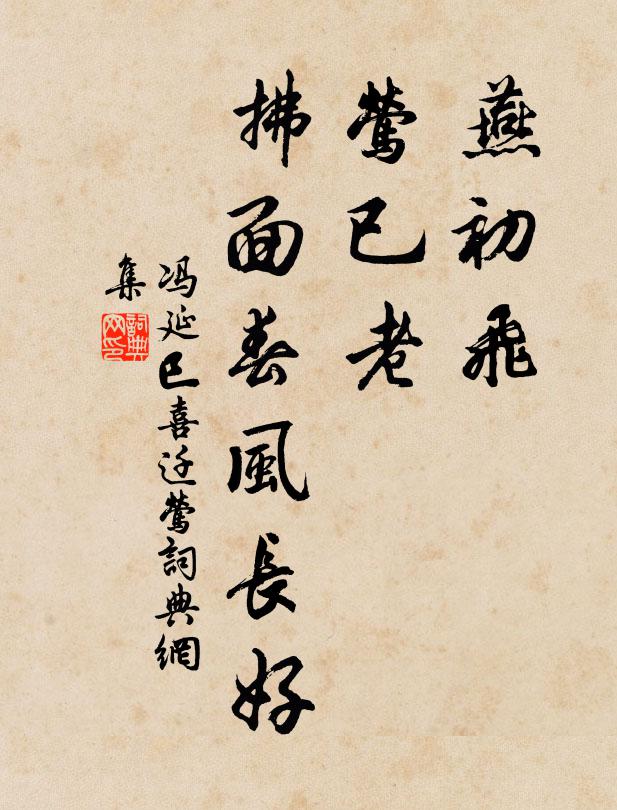 燕初飛
鶯已老
拂面春風長好
冯延巳喜迁鶯詞典網
集
詞典網印